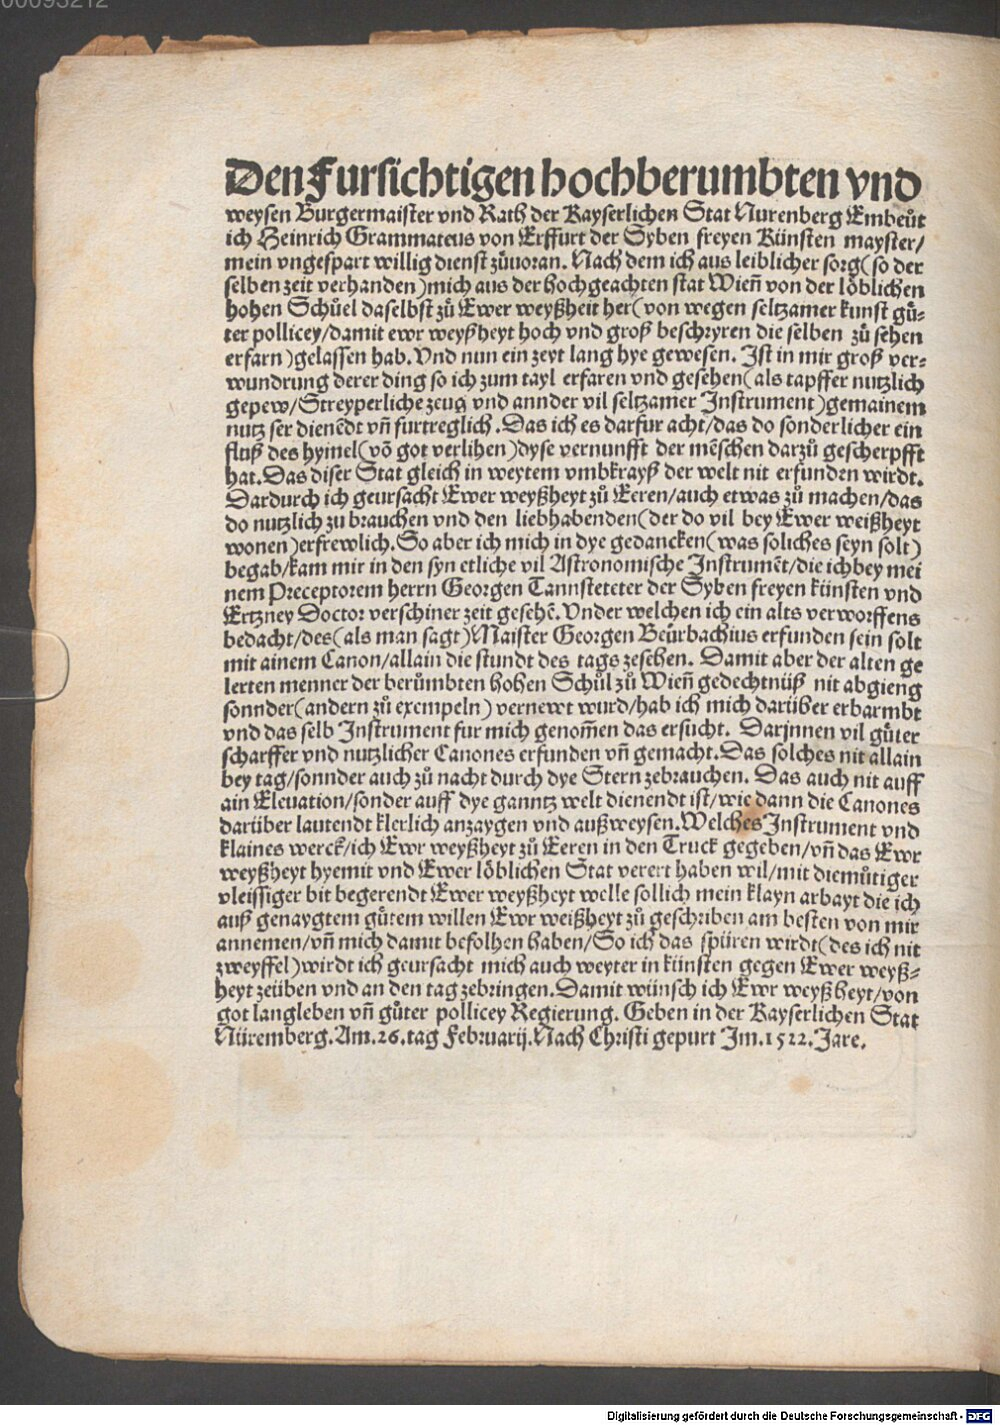 00093212
Den Fursichtigen hochberumbten vnd
weysen Burgermaister vnd Rath der Kayserlichen Stat Nurenberg Embeůt
ich Heinrich Grammateus von Erffurt der Syben freyen Künsten mayster/
mein vngespart willig dienst zůuoran. Nach dem ich aus leiblicher sorg(so der
selben zeit verhanden)mich aus der hochgeachten stat Wien̄ von der löblichen
hohen Schůel daselbst zů Ewer weyßheit her(von wegen seltzamer kunst gů⸗
ter pollicey/damit ewr weyßheyt hoch vnd groß beschryren die selben zů sehen
erfarn)gelassen hab. Vnd nun ein zeyt lang hye gewesen. Ist in mir groß ver⸗
wundrung derer ding so ich zum tayl erfaren vnd gesehen(als tapffer nutzlich
gepew/Streyperliche zeug vnd annder vil seltzamer Instrument)gemainem
nutz ser dienēdt vn̄ furtreglich. Das ich es darfur acht/das do sonderlicher ein
fluß des hymel(vō got verlihen)dyse vernunfft der mēschen darzů gescherpfft
hat. Das diser Stat gleich in weytem vmbkrayß der welt nit erfunden wirdt.
Dardurch ich geursacht Ewer weyßheyt zů Eeren/auch etwas zů machen/das
do nutzlich zu brauchen vnd den liebhabenden(der do vil bey Ewer weißheyt
wonen)erfrewlich. So aber ich mich in dye gedancken(was soliches seyn solt)
begab/kam mir in den syn etliche vil Astronomische Instrumēt/die ich bey mei
nem Preceptorem herrn Georgen Tannsteteter der Syben freyen künsten vnd
Ertzney Doctor verschiner zeit gesehē. Vnder welchen ich ein alts verworffens
bedacht/des(als man sagt)Maister Georgen Beůrbachius erfunden sein solt
mit ainem Canon/allain die stundt des tags zesehen. Damit aber der alten ge
lerten menner der berůmbten hohen Schůl zů Wien̄ gedechtnüß nit abgieng
sonnder(andern zů exempeln) vernewt wurd/hab ich mich darüber erbarmbt
vnd das selb Instrument fur mich genom̄en das ersucht. Darjnnen vil gůter
scharffer vnd nutzlicher Canones erfunden vn̄ gemacht. Das solches nit allain
bey tag/sonnder auch zů nacht durch dye Stern zebrauchen. Das auch nit auff
ain Eleuation/sonder auff dye ganntz welt dienendt ist/wie dann die Canones
darüber lautendt klerlich anzaygen vnd außweysen. Welches Instrument vnd
klaines werck/ich Ewr weyßheyt zů Eeren in den Truck gegeben/vn̄ das Ewr
weyßheyt hyemit vnd Ewer löblichen Stat verert haben wil/mit diemůtiger
vleissiger bit begerendt Ewer weyßheyt welle sollich mein klayn arbayt die ich
auß genaygtem gůtem willen Ewr weißheyt zů geschriben am besten von mir
annemen/vn̄ mich damit befolhen haben/So ich das spüren wirdt(des ich nit
zweyffel)wirdt ich geursacht mich auch weyter in künsten gegen Ewer weyß⸗
heyt zeüben vnd an den tag zebringen. Damit wünsch ich Ewr weyßheyt/von
got langleben vn̄ gůter pollicey Regierung. Geben in der Kayserlichen Stat
Nüremberg. Am. 26. tag Februarij. Nach Christi gepurt Im. 1522. Jare.
Digitalisierung gefördert durch die Deutsche Forschungsgemeinschaft - DFG